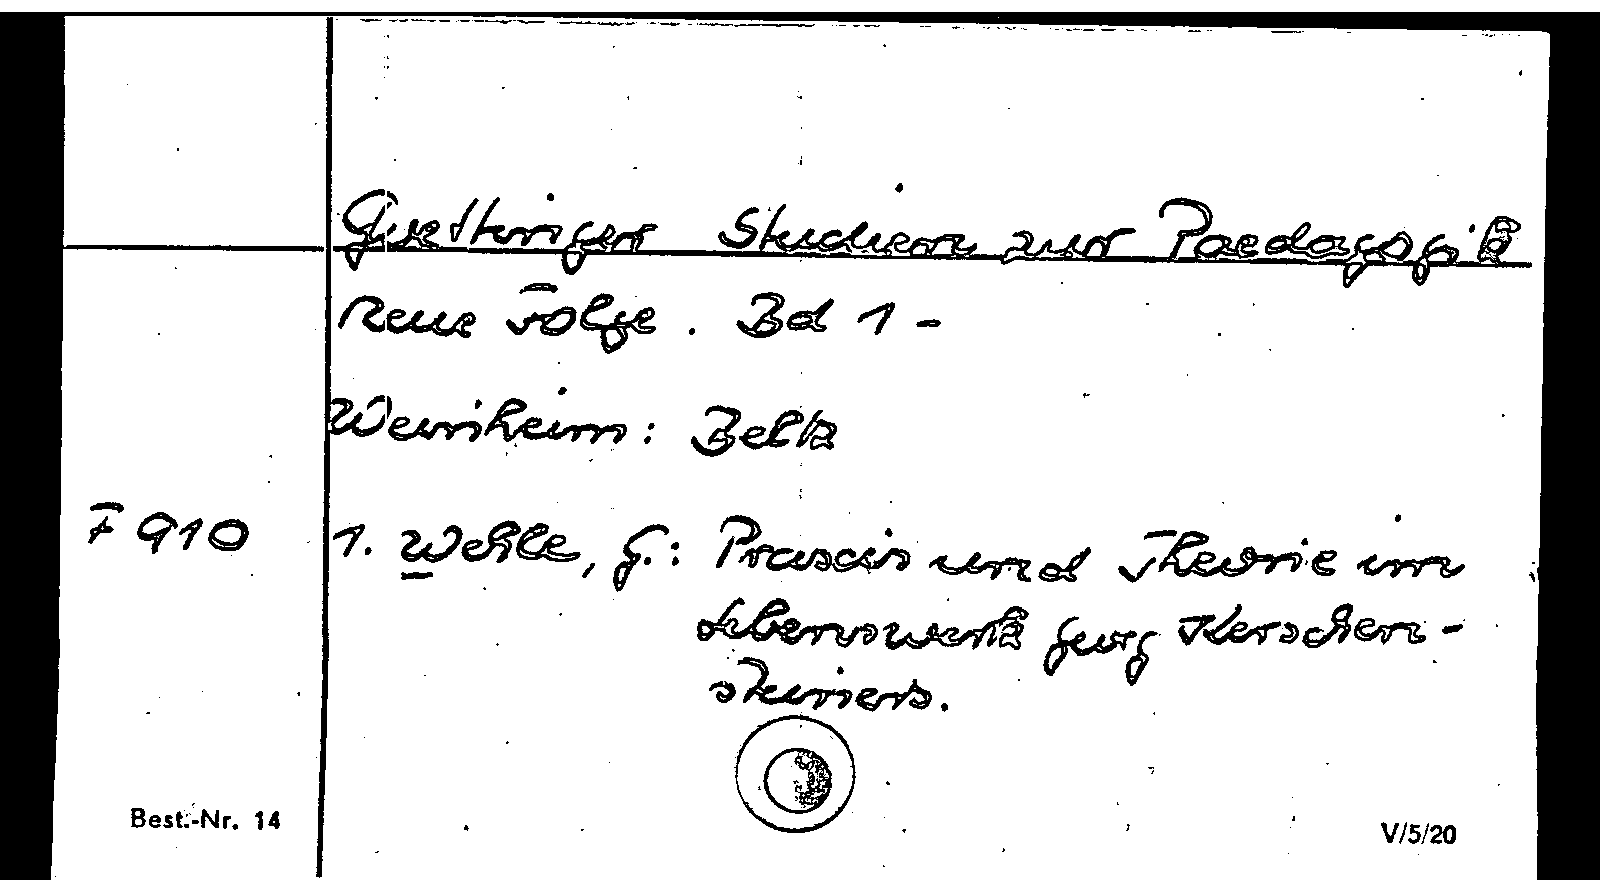 Goettinger Studien zur Paedagogik
Neue Folge. Bd 1 -
Weinheim: Beltz
F 910 1. Wehle, G.: Praxis und Theorie im
Lebenswerk Georg Kerschen-
steiners.
Best.-Nr. 14 V/5/20